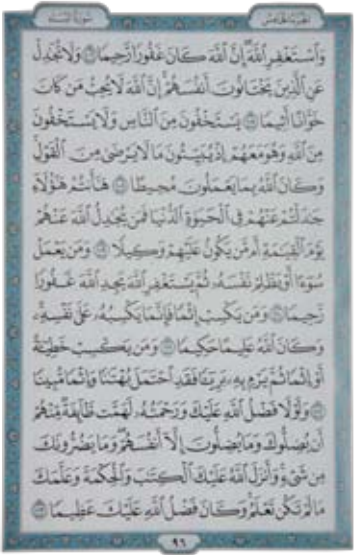 الجزء الخامس
سورة النساء
وَٱسْتَغْفِرِ ٱللَّهَ إِنَّ ٱللَّهَ كَانَ غَفُورًا رَّحِيمًا ۝ وَلَا تُجَٰدِلْ
عَنِ ٱلَّذِينَ يَخْتَانُونَ أَنفُسَهُمْ إِنَّ ٱللَّهَ لَا يُحِبُّ مَن كَانَ
خَوَّانًا أَثِيمًا ۝ يَسْتَخْفُونَ مِنَ ٱلنَّاسِ وَلَا يَسْتَخْفُونَ
مِنَ ٱللَّهِ وَهُوَ مَعَهُمْ إِذْ يُبَيِّتُونَ مَا لَا يَرْضَىٰ مِنَ ٱلْقَوْلِ
وَكَانَ ٱللَّهُ بِمَا يَعْمَلُونَ مُحِيطًا ۝ هَٰٓأَنتُمْ هَٰٓؤُلَآءِ
جَٰدَلْتُمْ عَنْهُمْ فِى ٱلْحَيَوٰةِ ٱلدُّنْيَا فَمَن يُجَٰدِلُ ٱللَّهَ عَنْهُمْ
يَوْمَ ٱلْقِيَٰمَةِ أَم مَّن يَكُونُ عَلَيْهِمْ وَكِيلًا ۝ وَمَن يَعْمَلْ
سُوٓءًا أَوْ يَظْلِمْ نَفْسَهُۥ ثُمَّ يَسْتَغْفِرِ ٱللَّهَ يَجِدِ ٱللَّهَ غَفُورًا
رَّحِيمًا ۝ وَمَن يَكْسِبْ إِثْمًا فَإِنَّمَا يَكْسِبُهُۥ عَلَىٰ نَفْسِهِۦ
وَكَانَ ٱللَّهُ عَلِيمًا حَكِيمًا ۝ وَمَن يَكْسِبْ خَطِيٓـَٔةً
أَوْ إِثْمًا ثُمَّ يَرْمِ بِهِۦ بَرِيٓـًٔا فَقَدِ ٱحْتَمَلَ بُهْتَٰنًا وَإِثْمًا مُّبِينًا
۝ وَلَوْلَا فَضْلُ ٱللَّهِ عَلَيْكَ وَرَحْمَتُهُۥ لَهَمَّت طَّآئِفَةٌ مِّنْهُمْ
أَن يُضِلُّوكَ وَمَا يُضِلُّونَ إِلَّآ أَنفُسَهُمْ وَمَا يَضُرُّونَكَ
مِن شَىْءٍ وَأَنزَلَ ٱللَّهُ عَلَيْكَ ٱلْكِتَٰبَ وَٱلْحِكْمَةَ وَعَلَّمَكَ
مَا لَمْ تَكُن تَعْلَمُ وَكَانَ فَضْلُ ٱللَّهِ عَلَيْكَ عَظِيمًا ۝
٩٦